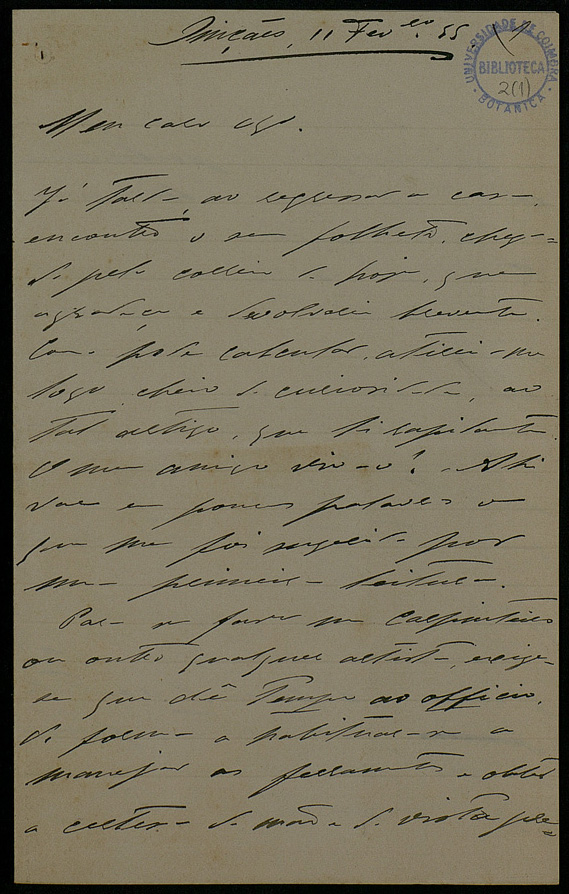 11 Fev.ro 85
UNIVERSIDADE DE COIMBRA
BIBLIOTECA
2(1)
BOTANICA
Meu caro Am.o
Já tarde, ao regressar a casa,
encontro o seu folheto, chega=
do pelo correio de hoje, que
agradeço e devolverei brevemente.
Como pode calcular, atirei-me
logo, cheio de curiosidade, ao
tal artigo, que li rapidamente.
O meu amigo viu-o? Ahi
vae em poucas palavras o
que me foi sugerido por
uma primeira leitura.
Para se fazer um carpinteiro
ou outro qualquer artista, exige-
se que dê tempo ao officio,
de forma a habituar-se a
manejar as ferramentas e obter
a certeza de mão e de vista